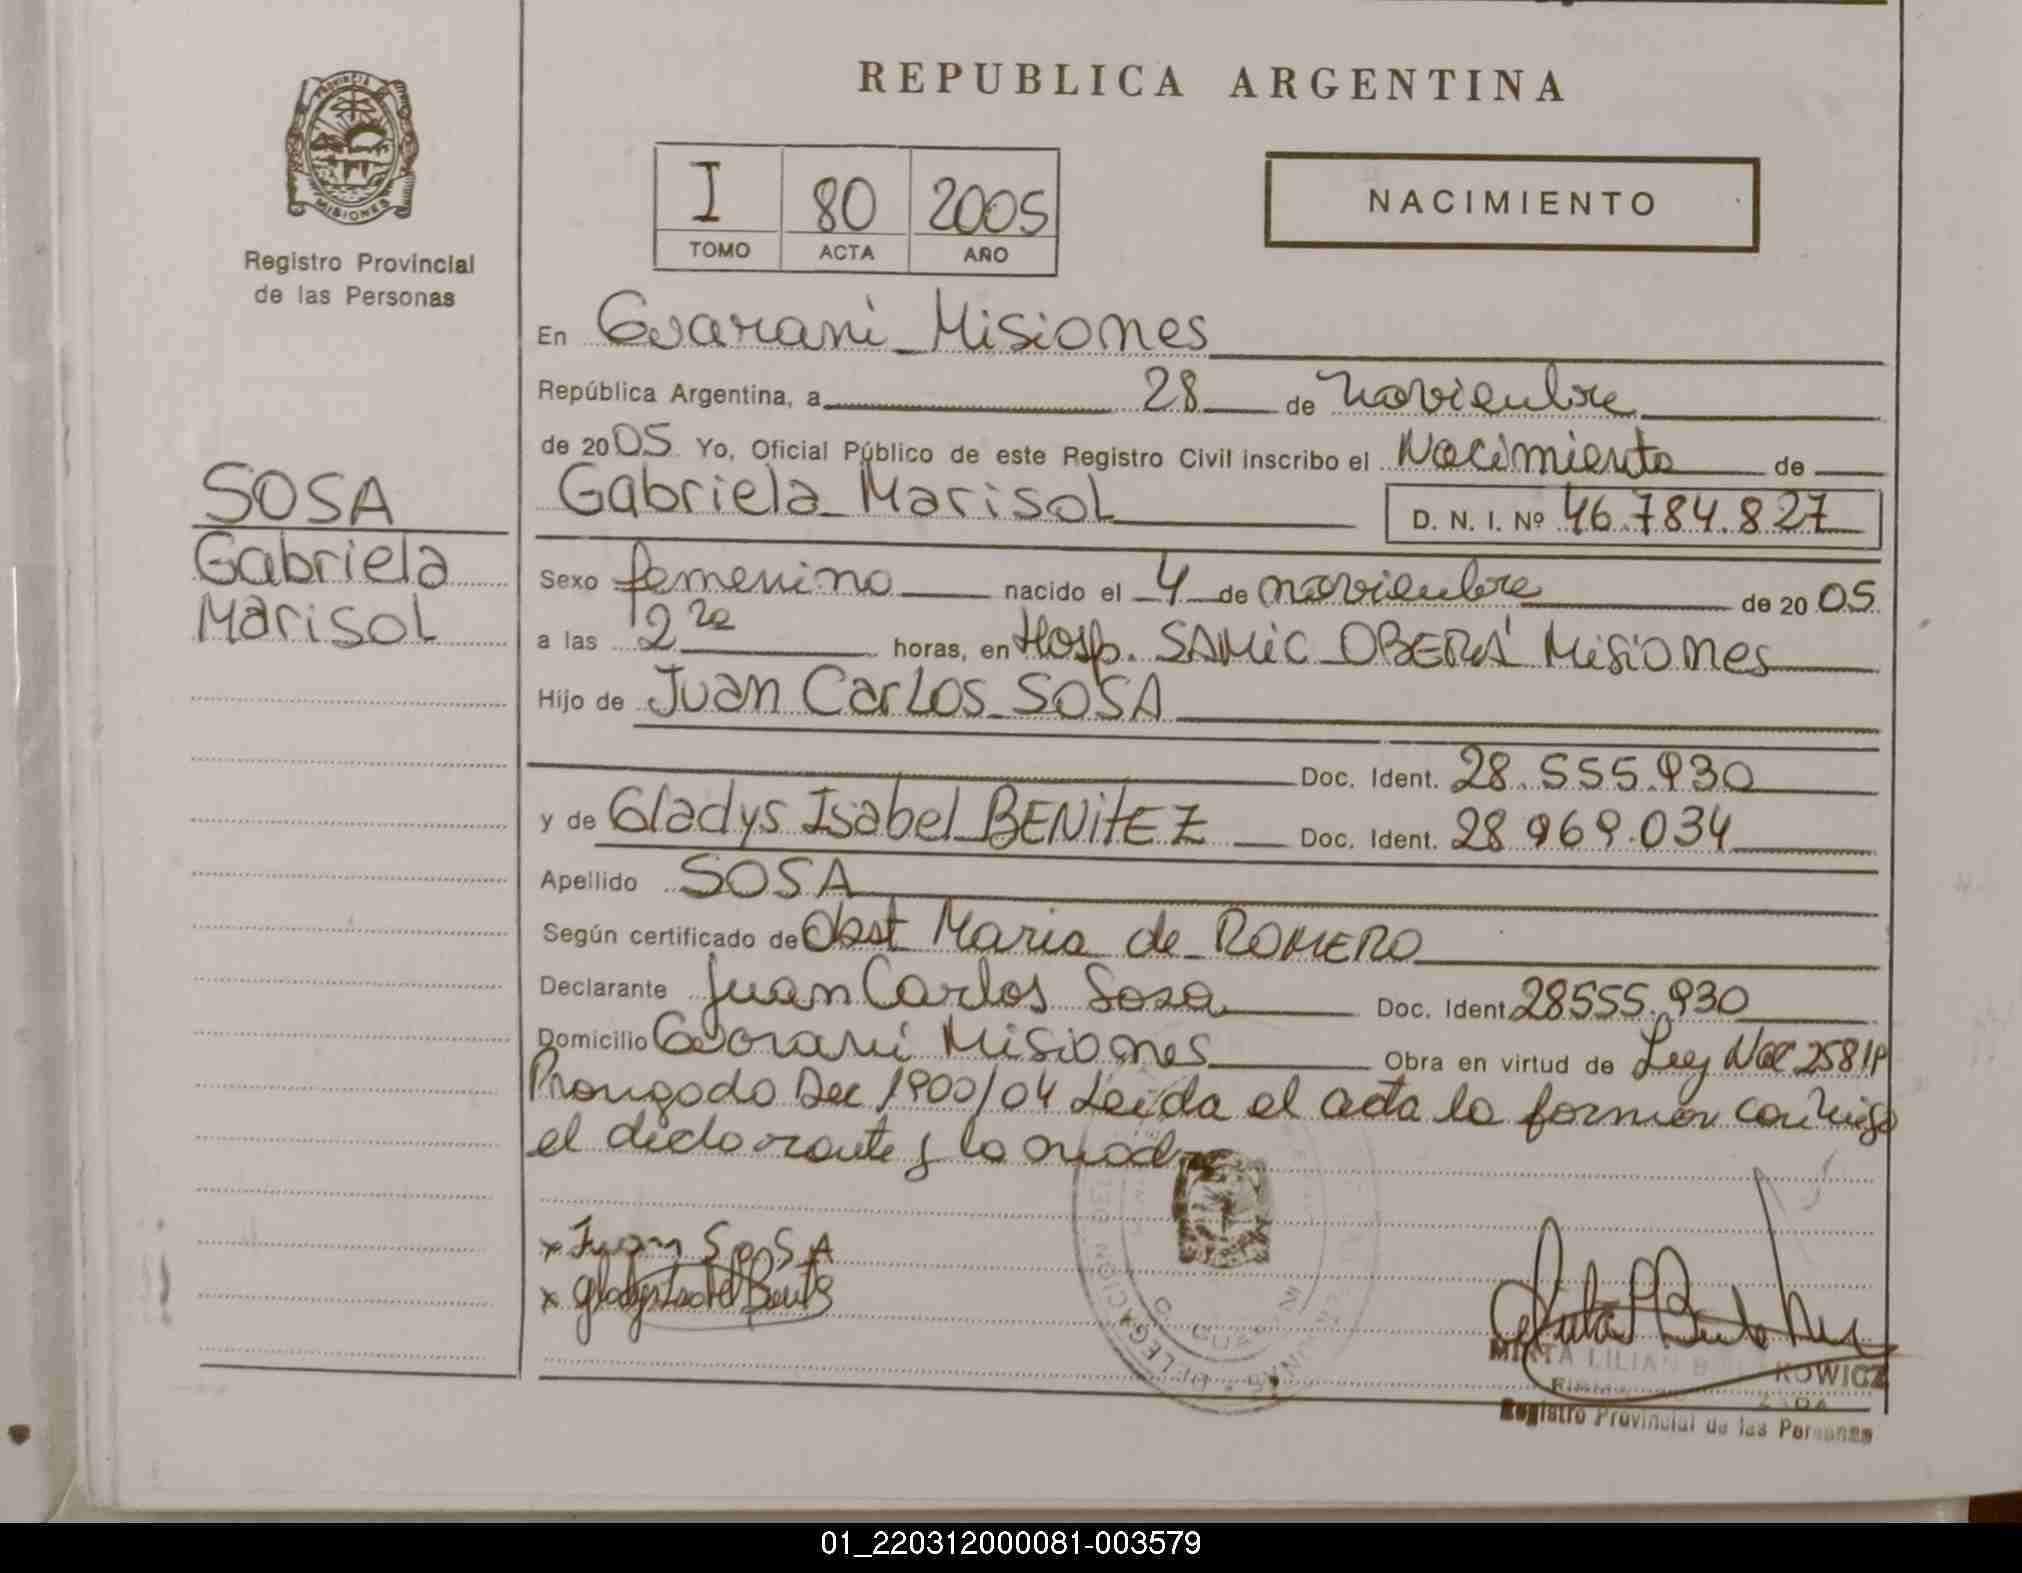 REPUBLICA ARGENTINA
PROVINCIA DE
MISIONES
Registro Provincial
de las Personas
I 80 2005
TOMO ACTA AÑO
NACIMIENTO
En Guarani Misiones
República Argentina, a 28 de noviembre
de 2005 Yo, Oficial Público de este Registro Civil inscribo el Nacimiento de
Gabriela Marisol D. N. I. Nº 46.784.827
SOSA
Gabriela
Marisol
Sexo femenino nacido el 4 de noviembre de 2005
a las horas, en Hosp. SAMIC OBERÁ Misiones
Hijo de Juan Carlos SOSA
Doc. Ident. 28.555.930
y de Gladys Isabel BENITEZ Doc. Ident. 28 969.034
Apellido SOSA
Según certificado de Obst Maria de ROMERO
Declarante Juan Carlos Sosa Doc. Ident 28555.930
Domicilio Guarani Misiones Obra en virtud de Ley Nac 25819
Dec 1900/04 Leida el acta la firman conmigo
el declarante y la madre
x Juan SosSA
x Gladys Isabel
MIRTA LILIAN KOWICZ
Registro Provincial de las Personas
01_220312000081-003579